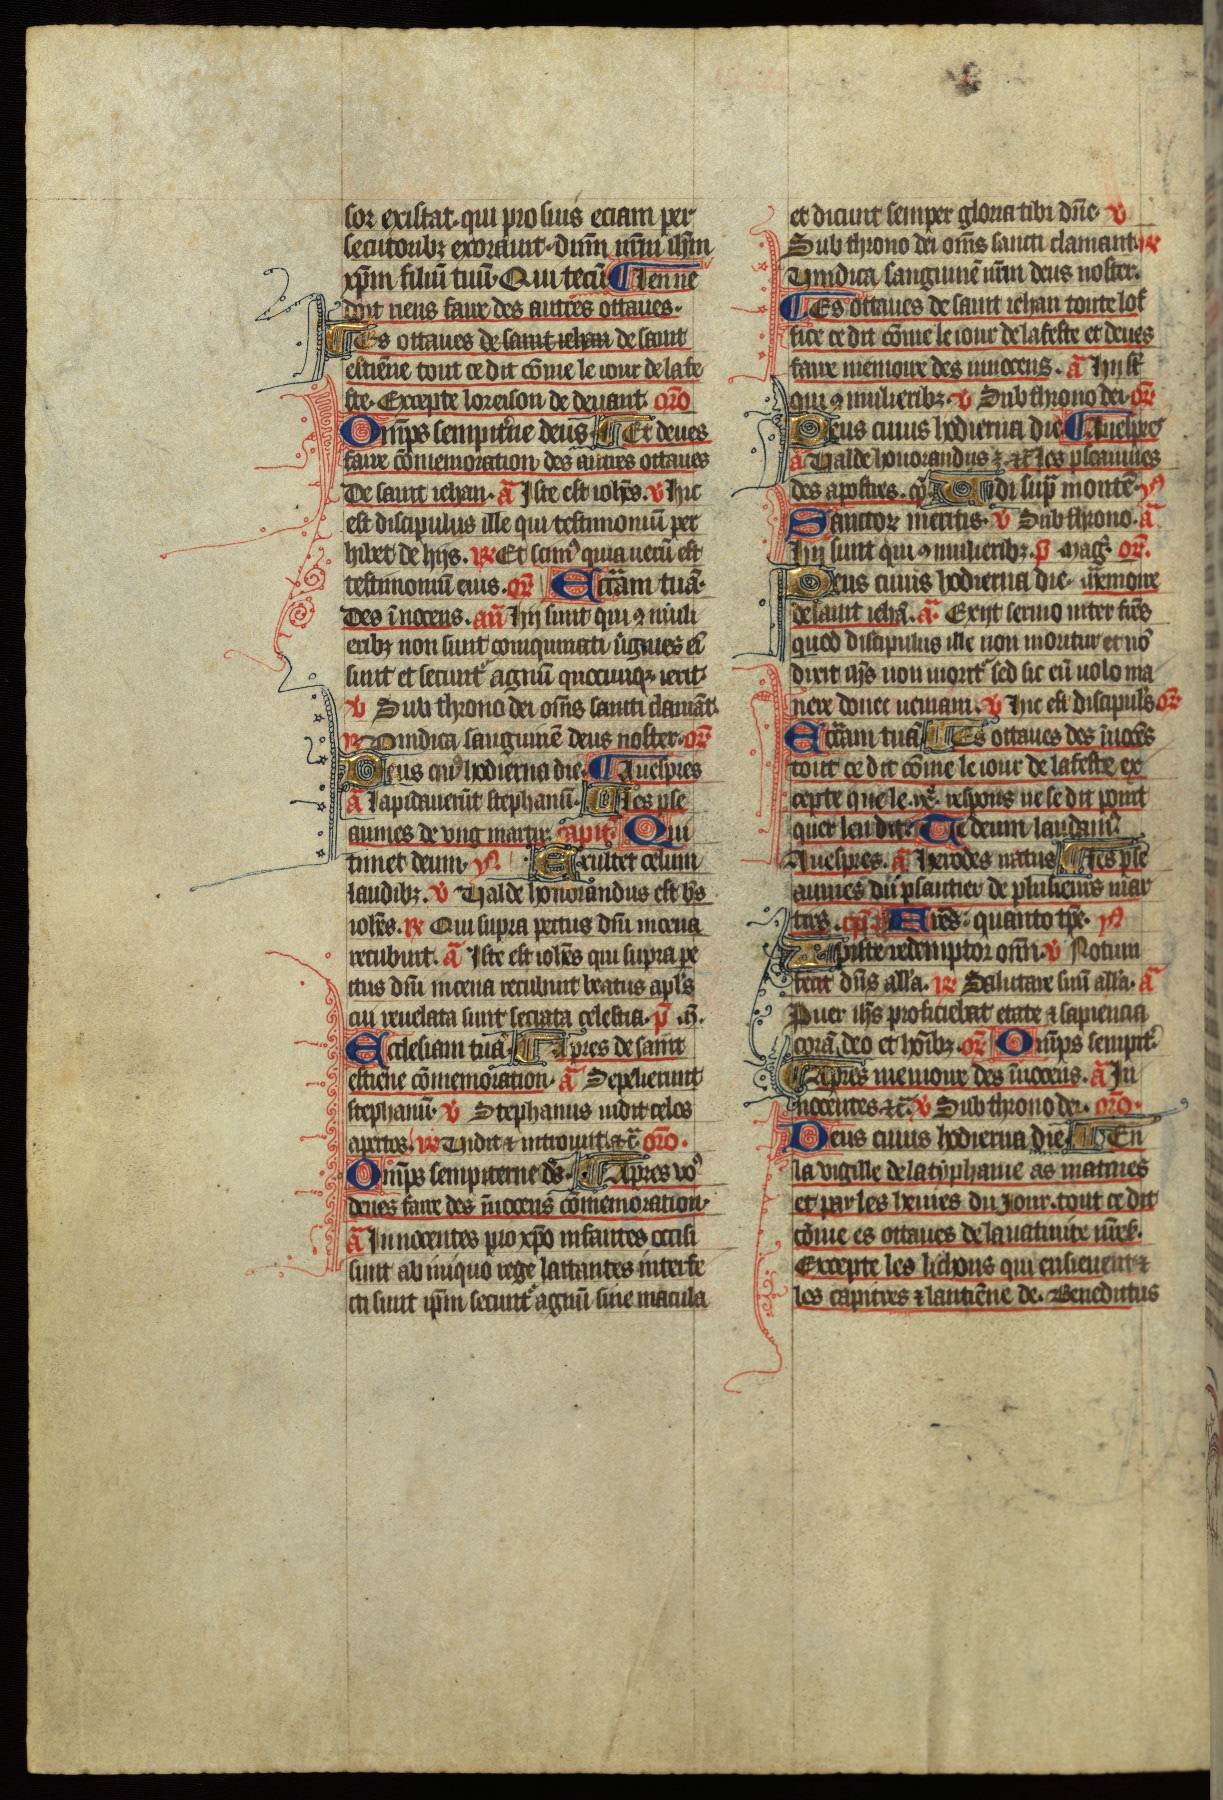 sor existat. qui pro suis eciam per
secutoribꝫ exorauit. dnm̄ nr̄m ihm̄
xp̄m filiū tuū. Qui tecū Len ne
doit riens faire des autres ottaues.
Es ottaues de saint iehan de saint
estiēne tout ce dit cōme le iour de la fe
ste. Excepte loreison de deuant. oro
Omp̄s sempit̄ne deus Et deues
faire cōmemoration des autres ottaues
De saint iehan. ā Iste est ioh̄es. v̄ Hic
est discipulus ille qui testimoniū per
hibet de hijs. ꝶ Et scim⁹ quia uerū est
testimonium eius. or̄ Eccl̄iam tuā.
Des īnocens. an̄ Hij sunt qui ꝯ muli
eribꝫ non sunt coinquinati ūgines ei
sunt et secunt̄ agnū quocunqꝫ ierit.
v̄ Sub throno dei om̄s sancti clamāt.
ꝶ Vindica sanguinē deus noster. or̄
Deus cui⁹ hodierna die. A uespres
ā Lapidauerūt stephanū. Les pse
aumes de vng martir. capit̄. Qui
timet deum. yn̄. Exultet celum
laudibꝫ. v̄ Valde honorandus est bs̄
ioh̄es. ꝶ Qui supra pectus dn̄i in cena
recubuit. ā Iste est ioh̄es qui supra pe
ctus dn̄i in cena recubuit beatus apl̄s
cui reuelata sunt secrata celestia. p̄ m̄.
Ecclesiam tuā. Apres de saint
estiene cōmemoration. ā Sepelierunt
stephanū. v̄ Stephanus uidit celos
apertos. ꝶ Vidit ⁊ introiuit. ⁊c̄ oro.
Omp̄s sempiterne ds̄. Apres vo⁹
deues faire des īnocens cōmemoration.
ā Innocentes pro xp̄o infantes occisi
sunt ab iniquo rege lactantes interfe
cti sunt ip̄m secunt̄ agnū sine macula
et dicunt semper gloria tibi dn̄e. v̄
Sub throno dei om̄s sancti clamant. ꝶ
Vindica sanguinē nr̄m deus noster.
Es ottaues de saint iehan toute lof
fice ce dit cōme le iour de la feste et deues
faire memoire des innocens. ā Hij st̄
qui ꝯ mulieribꝫ. v̄ Sub throno dei. or̄
Deus cuius hodierna die A uespres
ā Valde honorandus ⁊. ⁊c̄ les pseaumes
des apostres. Vidi sup̄ montē. yn̄
Sanctor̄ meritis. v̄ Sub throno. ā
Hij sunt qui ꝯ mulieribꝫ. p̄ maḡ. or̄.
Deus cuius hodierna die. memoire
de saint iehā. ā. Exijt sermo inter fr̄es
quod discipulus ille non moritur et nō
dixit ihs̄ non morit̄ sed sic eū uolo ma
nere donec ueniam. v̄ Hic est discipuls̄ or̄
Eccl̄iam tuā Es ottaues des īnocēs
tout ce dit cōme le iour de la feste ex
cepte que le .ixͤ. respons ne se dit point
quer len dit. Te deum laudam⁹.
A uespres. ā Herodes iratus Les pse
aumes du psautier de plusieurs mar
tirs. cap̄. Heres quanto tp̄e. yn̄
Xpiste redemptor om̄. v̄ Notum
fecit dn̄s all̄a. ꝶ Salutare suū all̄a. ā
Puer ihs̄ proficiebat etate ⁊ sapiencia
corā deo et hōibꝫ. or̄ Omp̄s sempit̄
Apres memoire des īnocens. ā In
nocentes ⁊c̄. v̄ Sub throno dei. oro.
Deus cuius hodierna die En
la vigille de la typhanie as matines
et par les heures du iour. tout ce dit
cōme es ottaues de la natiuite nr̄e s̄.
Excepte les lichons qui ensieuent ⁊
les capitres ⁊ lantiēne de. Benedictus